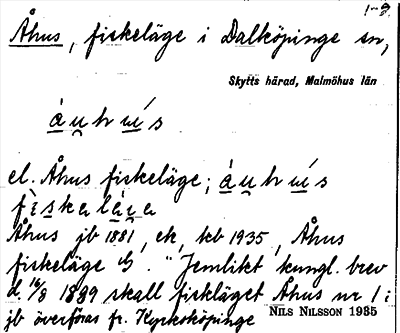 1-2
Åhus, fiskeläge i Dalköpinge sn,
Skytts härad, Malmöhus län
áu̯hu̯ś
el. Åhus fiskeläge; áu̯hu̯ś
fìskalä̀ɩa
Åhus jb 1881, ek, tcb 1935, Åhus
fiskeläge ib. "Jemlikt kungl. brev
d. 16/8 1889 skall fiskläget Åhus nr 1 i
jb överföras fr. Kyrkoköpinge
NILS NILSSON 1935